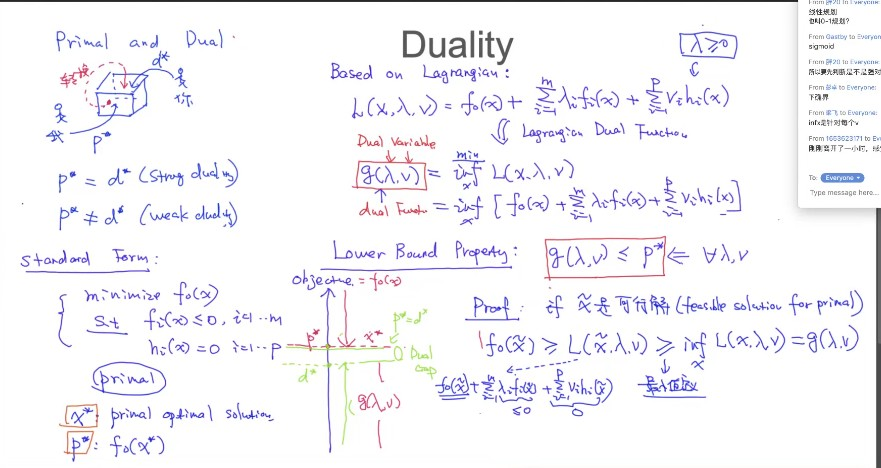 Duality
Primal and Dual
d*
转换
我
你
p*
p* = d* (strong duality)
p* ≠ d* (weak duality)
Standard Form:
minimize f₀(x)
s.t fᵢ(x) ≤ 0, i=1…m
hᵢ(x) = 0 i=1…p
primal
x*: primal optimal solution
p*: f₀(x*)
λ≥0
Based on Lagrangian:
L(x,λ,v) = f₀(x) + Σᵢ₌₁ᵐ λᵢfᵢ(x) + Σᵢ₌₁ᵖ vᵢhᵢ(x)
⇓ Lagrangian Dual Function
Dual Variable
min
g(λ,v) = inf_x L(x,λ,v)
dual Functio
= inf_x [f₀(x) + Σᵢ₌₁ᵐ λᵢfᵢ(x) + Σᵢ₌₁ᵖ vᵢhᵢ(x)]
Lower Bound Property: g(λ,v) ≤ p* ⇐ ∀λ,v
objective = f₀(x)
p*
x*
p*=d*
Dual
Gap
d*
g(λ,v)
Proof: if x̃是可行解 (feasible solution for primal)
f₀(x̃) ≥ L(x̃,λ,v) ≥ inf_x L(x,λ,v) = g(λ,v)
f₀(x̃) + Σᵢ₌₁ᵐ λᵢfᵢ(x̃) + Σᵢ₌₁ᵖ vᵢhᵢ(x̃)
≤0
0
From 胖20 to Everyone:
线性规划
也叫0-1规划?
From Gastby to Everyon
sigmoid
From 胖20 to Everyone:
所以要先判断是不是强对
to Everyone:
下确界
to Everyone:
infx是针对每个v
From 1653623171 to Eve
刚刚离开了一小时，
To: Everyone
Type message here...